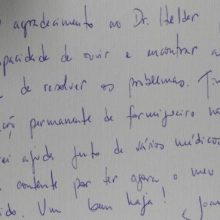 agradecimento ao Dr. Helder
capacidade de ouvir e encontrar a
de resolver os problemas. T
ção permanente de formigueiro na
ei ajuda junto de vários médicos
contente por ter agora o meu
ido. Um bem haja!